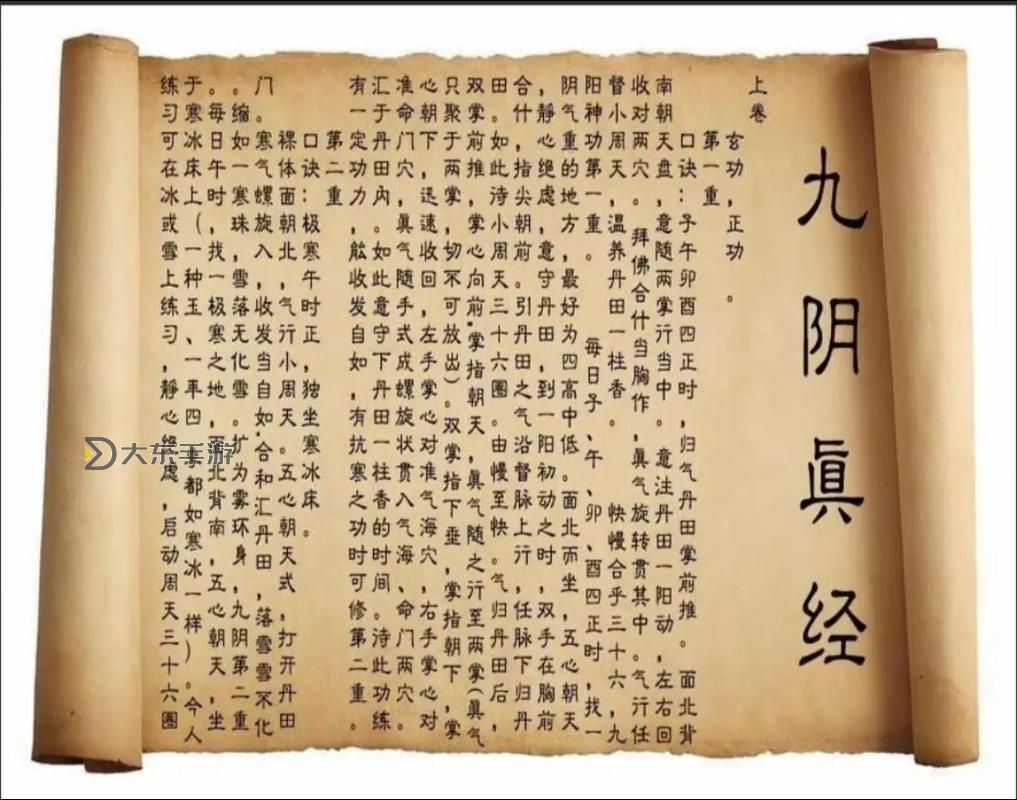 九阴眞经
上卷
玄功,正功。
第一重
口诀:子午卯酉四正时,归气丹田掌前推。面北背
南朝天盘,意随两掌行当中。意注丹田一阳动,左右回
收对两穴。拜佛合什当胸作,眞气旋转贯其中。气行任
督小周天,温养丹田一柱香。快慢合乎三十六,九
阳神功第一重。每日子、午、卯、酉四正时,找一
阴气重的地方,最好为四高中低。面北而坐,五心朝天
,静心绝虑,意守丹田,到一阳初动之时,双手在胸前
合什,指尖朝前。引丹田之气沿督脉上行,任脉下归丹
田。如此待小周天三十六圈。由慢至快。气归丹田后,
双掌前推,掌心向前.掌指朝天,眞气随之行至两掌(眞气
只聚于两掌,切不可放出)。双掌指下垂,掌指朝下,掌
心朝下,迅速收回,左手掌心对准气海穴,右手掌心对
准命门穴,眞气随手式成螺旋状贯入气海、命门两穴。
汇于丹田内。如此意守下丹田一柱香的时间。待此功练
有一定功力,能收发自如,有抗寒之功时可修第二重。
第二重
口诀:极寒午时正,独坐寒冰床。
裸体面朝北,气行小周天。五心朝天式,打开丹田
门。寒气螺旋入,收发当自如.合和汇丹田,落雪雪不化
。缩如一寒珠,雪落无化雪。扩为雾环身,九阴第二重
。每日午时,找一极寒之地,面北背南,五心朝天,坐
于寒冰床上(一种玉、一年四季都如寒冰一样)。今人
练习可在冰或雪上练习,静心绝虑,启动周天三十六圈
大东手游